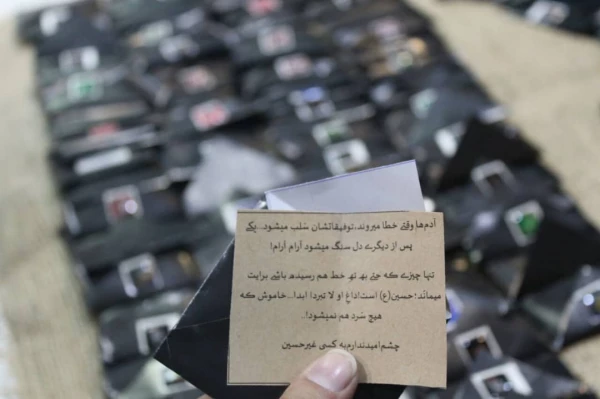 آدم‌ها وقتی خطا میروند،توفیقاتشان سَلب میشود.. یکی
پس از دیگری دل سنگ میشود آرام آرام!
تنها چیزی که حتی به ته خط هم رسیده باشی برایت
میماند؛حسین(ع) است!داغ او لا تبردا ابدا...خاموش که
هیچ سَرد هم نمیشود!..
چشم امیدندارم به کسی غیرحسین